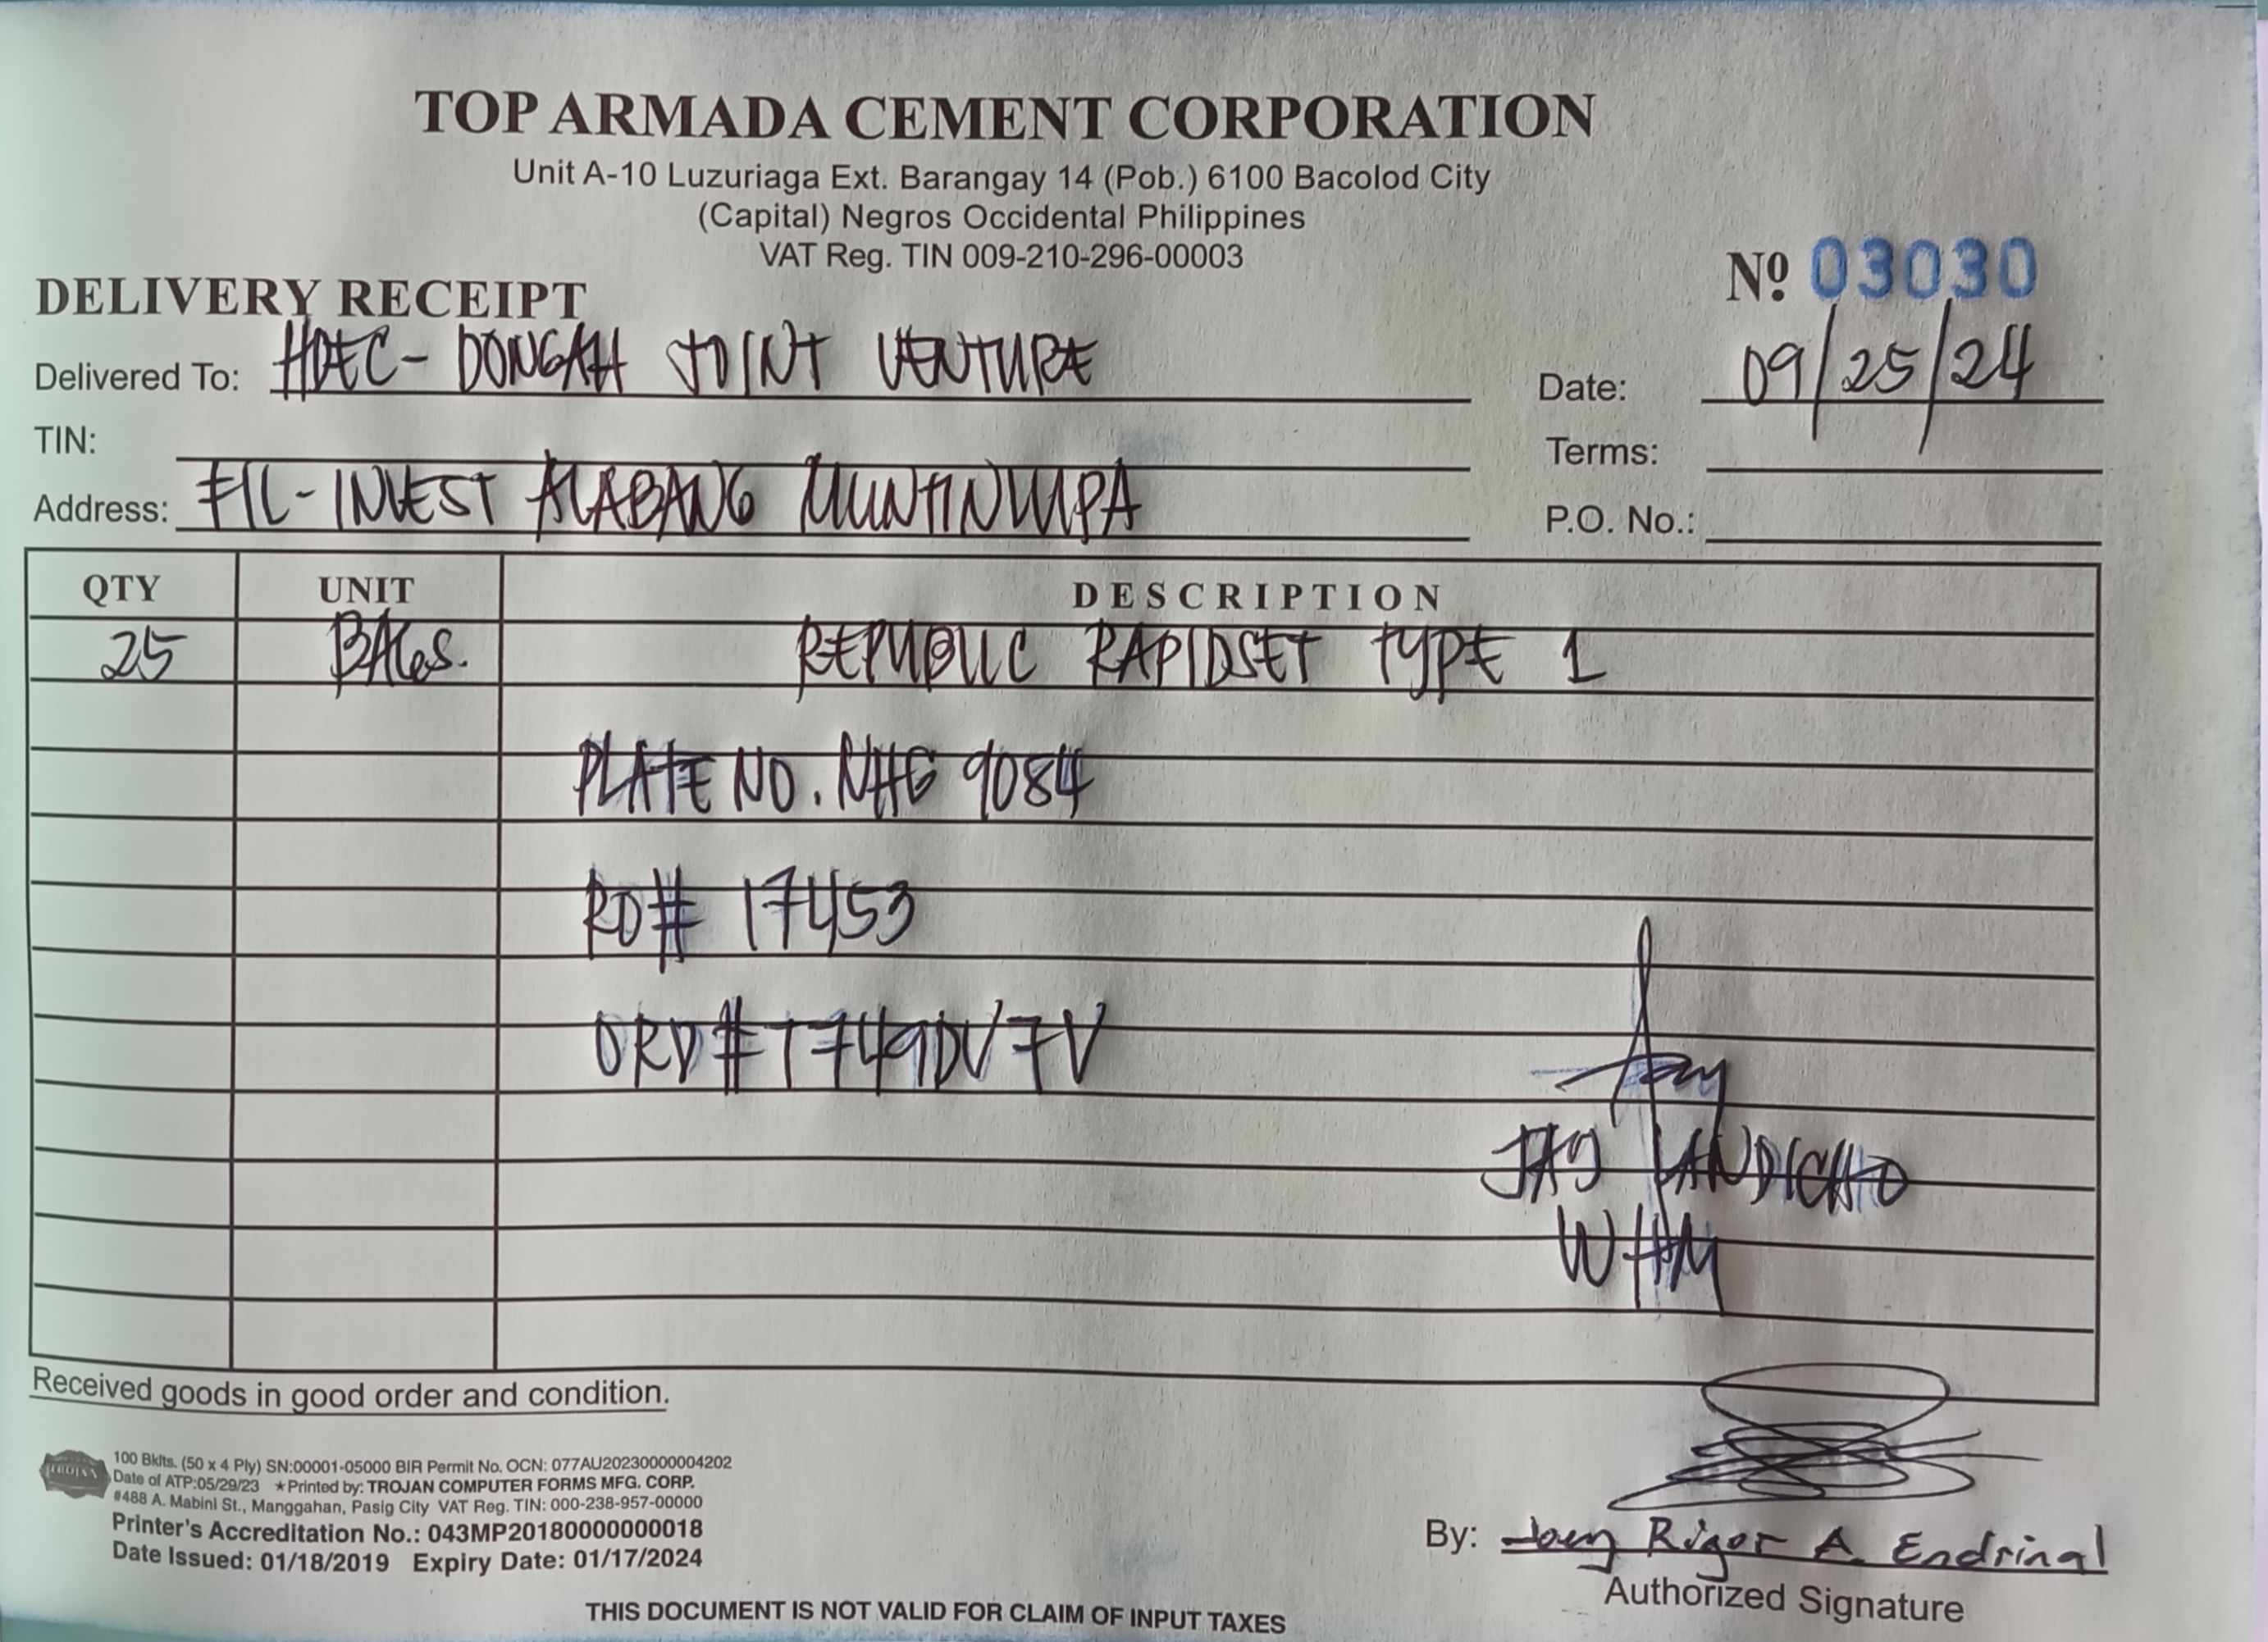 TOP ARMADA CEMENT CORPORATION
Unit A-10 Luzuriaga Ext. Barangay 14 (Pob.) 6100 Bacolod City
(Capital) Negros Occidental Philippines
VAT Reg. TIN 009-210-296-00003
DELIVERY RECEIPT
Nº 03030
Delivered To: HDEC - DONGAH JOINT VENTURE
Date: 09/25/24
TIN:
Terms:
Address: FIL-INVEST ALABANG MUNTINLUPA
P.O. No.:
QTY UNIT DESCRIPTION
25 BAGS. REPUBLIC RAPIDSET TYPE 1
PLATE NO. NHG 9084
RO# 17453
ORD# T749DV7V
JAY LANDICHO
WHM
Received goods in good order and condition.
TROJAN
100 Bklts. (50 x 4 Ply) SN:00001-05000 BIR Permit No. OCN: 077AU20230000004202
Date of ATP:05/29/23 ★Printed by: TROJAN COMPUTER FORMS MFG. CORP.
#488 A. Mabini St., Manggahan, Pasig City VAT Reg. TIN: 000-238-957-00000
Printer's Accreditation No.: 043MP20180000000018
Date Issued: 01/18/2019 Expiry Date: 01/17/2024
By: Joey Rigor A. Endrinal
Authorized Signature
THIS DOCUMENT IS NOT VALID FOR CLAIM OF INPUT TAXES